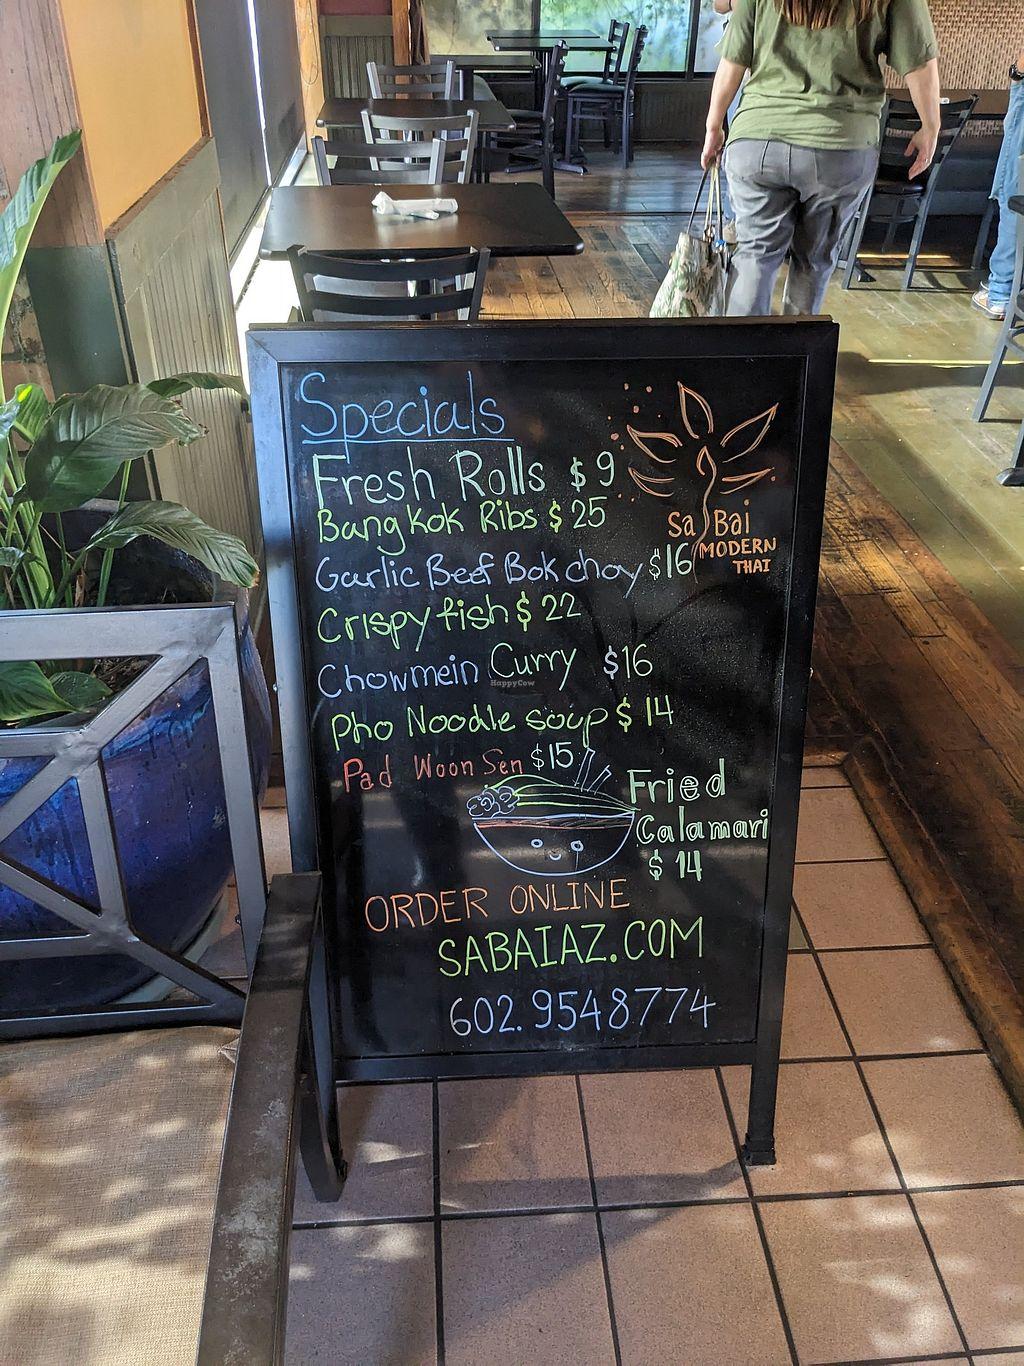 Specials
Fresh Rolls $9
Bangkok Ribs $25
Sa Bai
MODERN
THAI
Garlic Beef Bok choy $16
Crispy fish $22
Chowmein Curry $16
HappyCow
Pho Noodle soup $14
Pad Woon Sen $15
Fried
Calamari
$14
ORDER ONLINE
SABAIAZ.COM
602.9548774